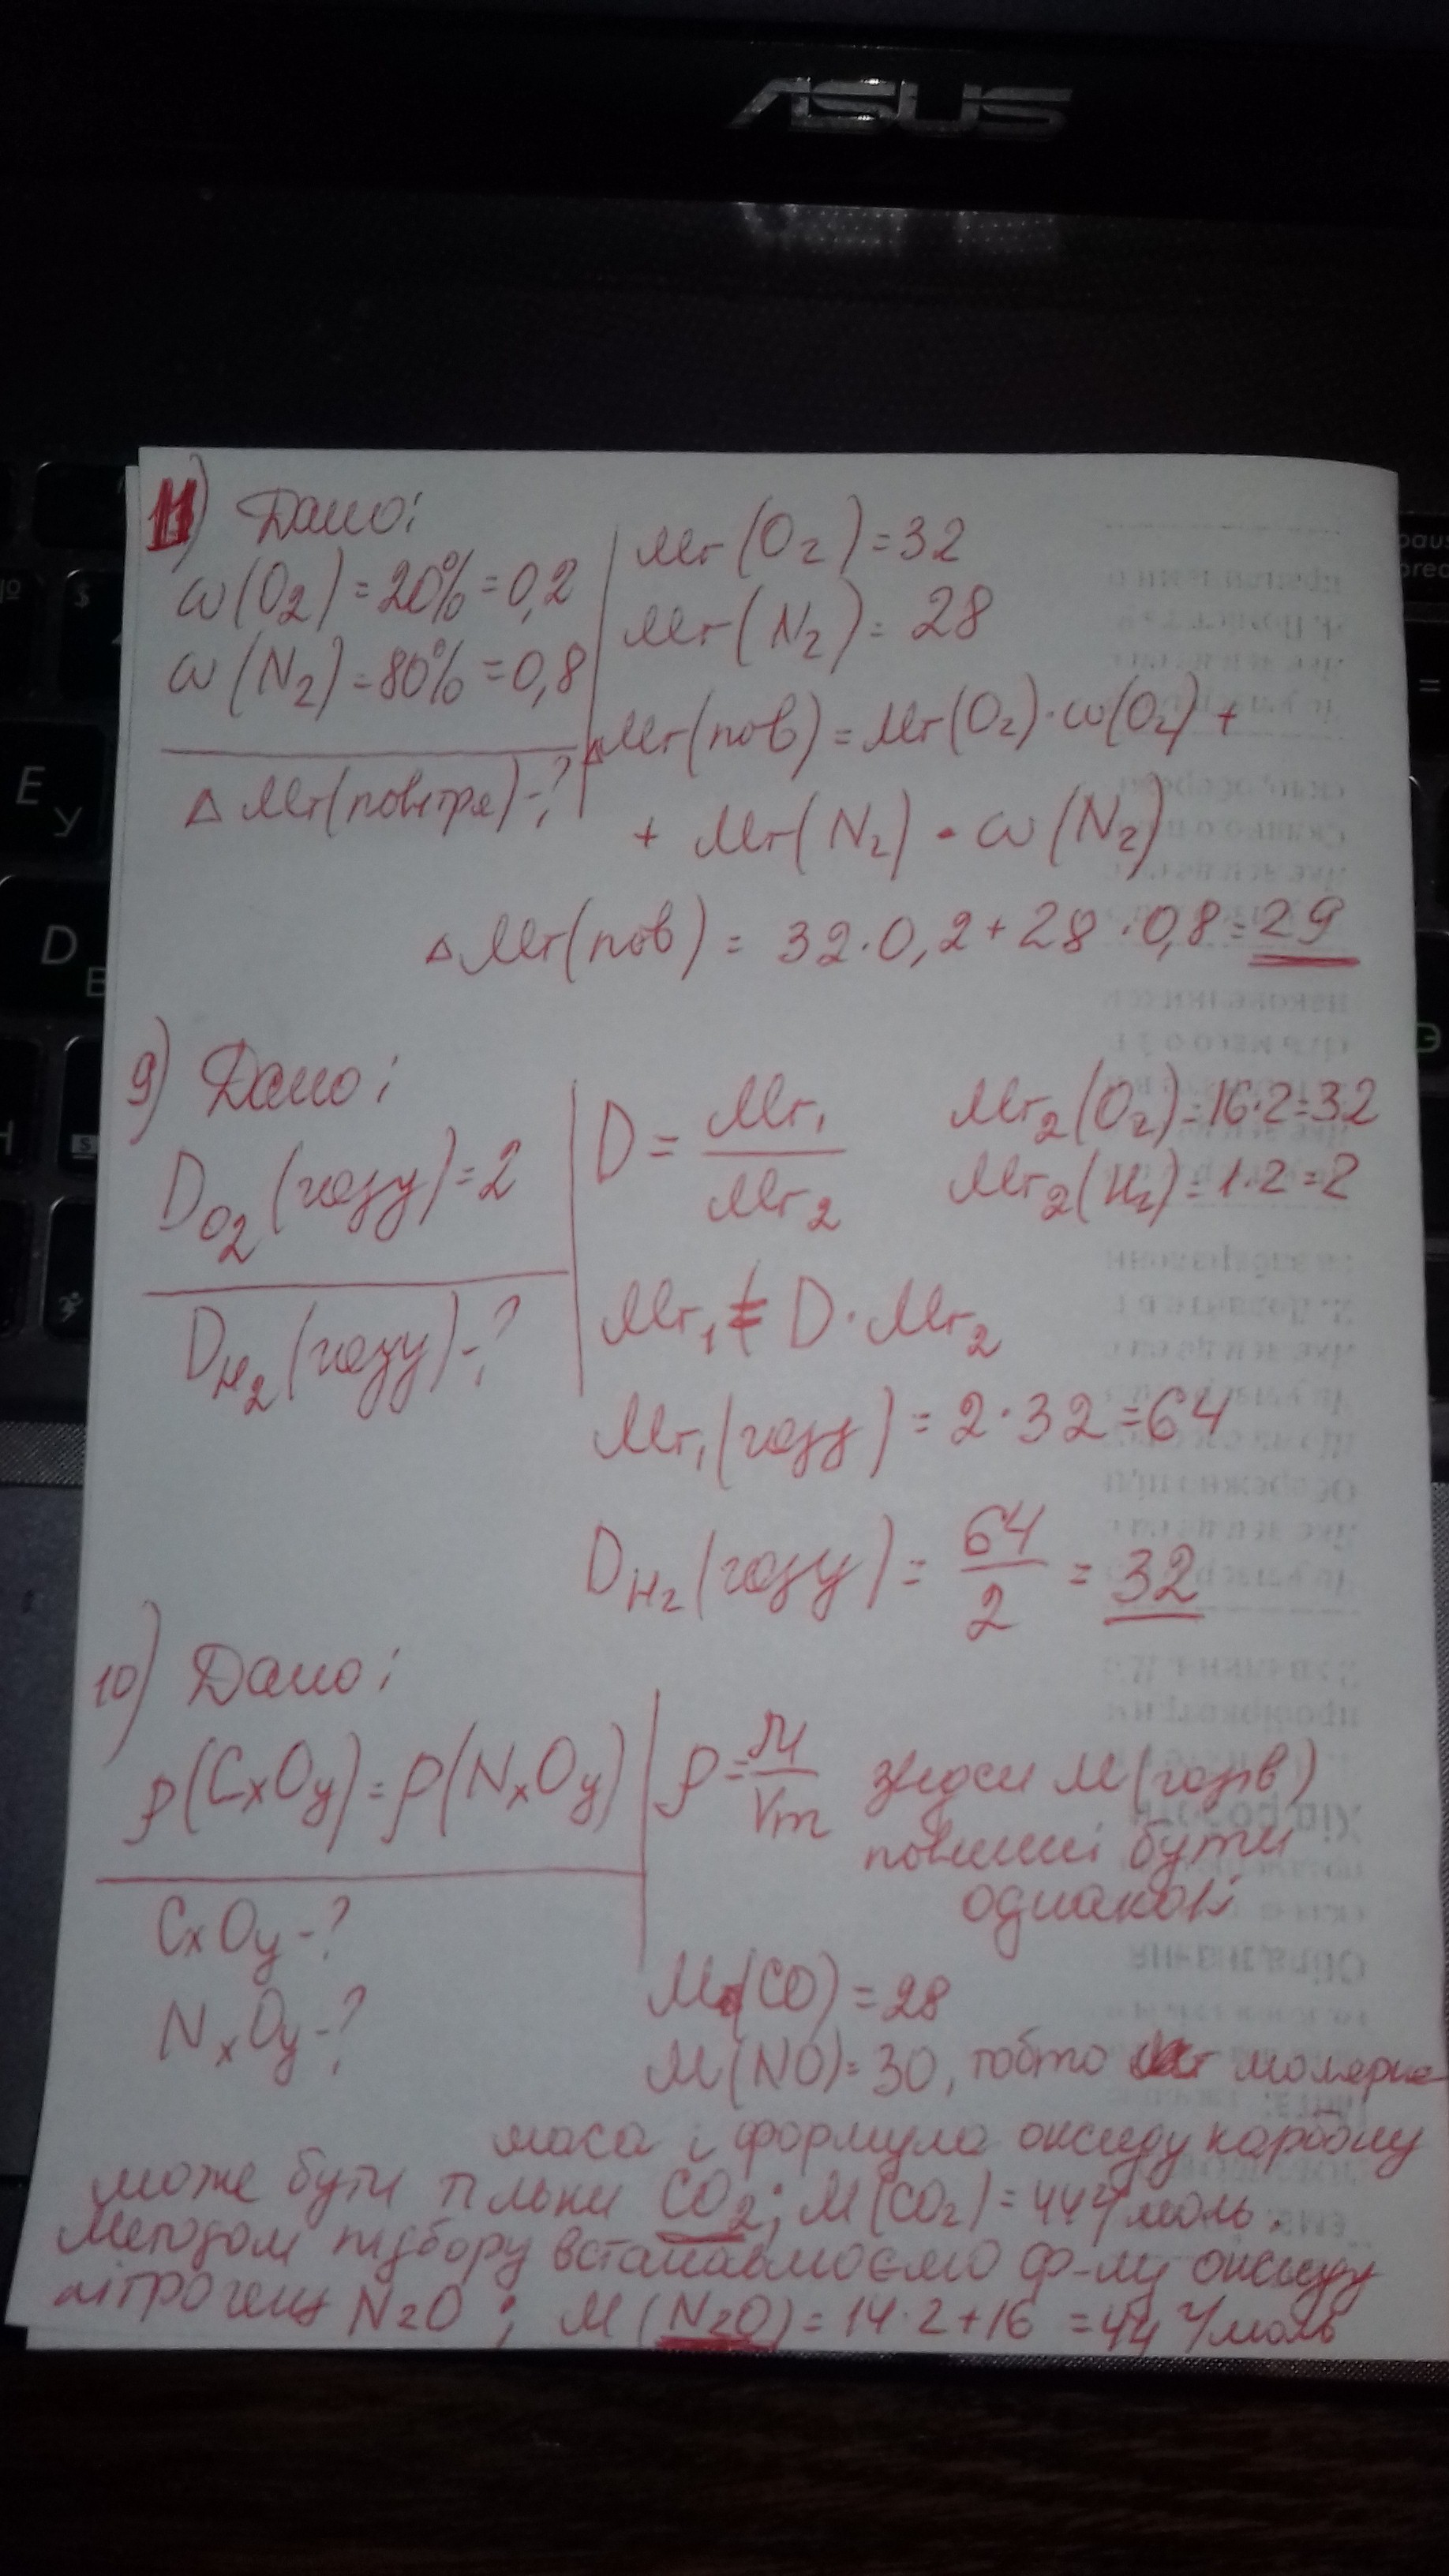 ASUS
11) Дано:
ω(O₂) = 20% = 0,2
ω(N₂) = 80% = 0,8
△ Mr(повітря) - ?
Mr(O₂) = 32
Mr(N₂) = 28
△Mr(пов) = Mr(O₂) · ω(O₂) +
+ Mr(N₂) · ω(N₂)
△ Mr(пов) = 32 · 0,2 + 28 · 0,8 = 29
9) Дано:
D O₂ (газу) = 2
D H₂ (газу) - ?
D = Mr₁ / Mr₂
Mr₂(O₂) = 16·2 = 32
Mr₂(H₂) = 1·2 = 2
Mr₁ = D · Mr₂
Mr₁(газу) = 2 · 32 = 64
D H₂ (газу) = 64 / 2 = 32
10) Дано:
ρ(CxOy) = ρ(NxOy)
CxOy - ?
NxOy - ?
ρ = M / Vm
звідси M(газів)
повинні бути
однакові
M(CO) = 28
M(NO) = 30, тобто молярна
маса і формула оксиду карбону
може бути тільки CO₂; M(CO₂) = 44 г/моль.
Методом підбору встановлюємо ф-лу оксиду
нітрогену N₂O; M(N₂O) = 14·2+16 = 44 г/моль
Е
У
D
$